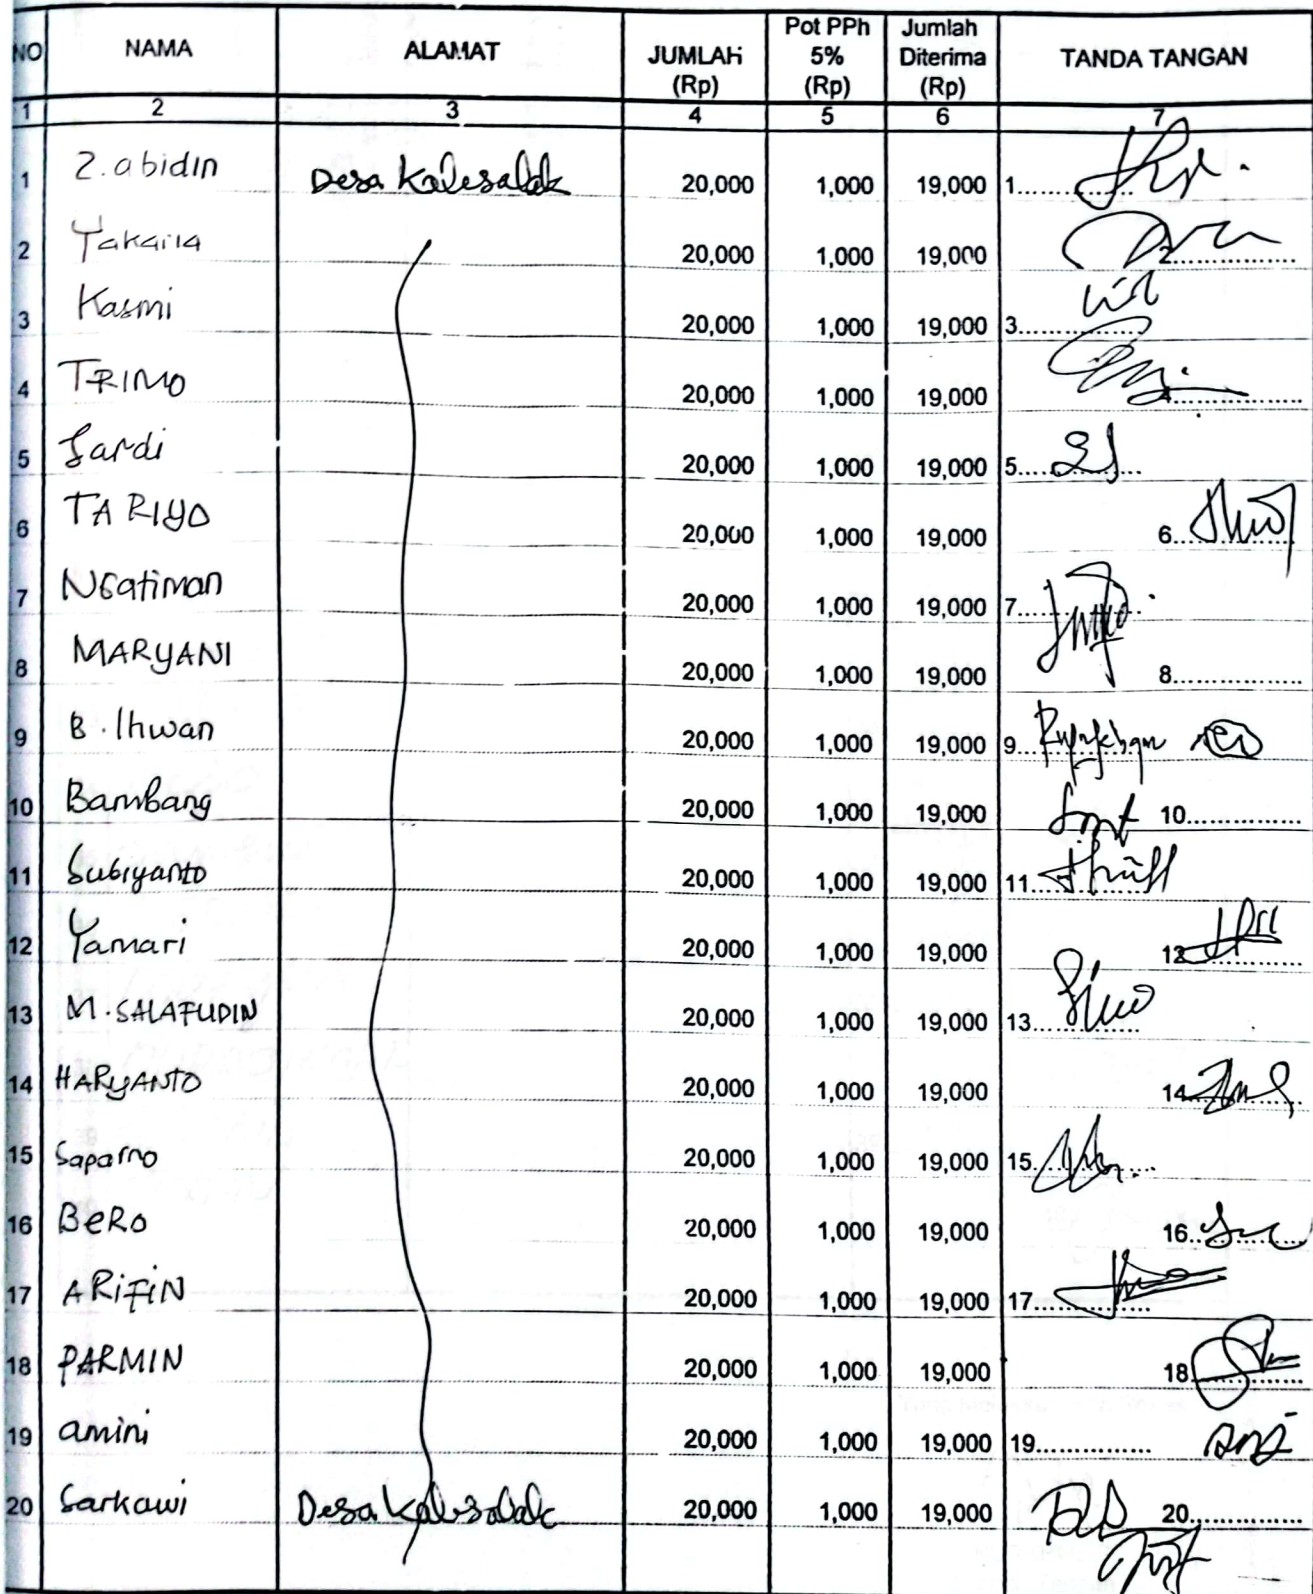 NO NAMA ALAMAT JUMLAH (Rp) Pot PPh 5% (Rp) Jumlah Diterima (Rp) TANDA TANGAN
1 2 3 4 5 6 7
1 Z. abidin Desa Kalisalak 20,000 1,000 19,000 1
2 Yakaria 20,000 1,000 19,000 2
3 Kasmi 20,000 1,000 19,000 3
4 TRIMO 20,000 1,000 19,000 4
5 Sardi 20,000 1,000 19,000 5
6 TARIYO 20,000 1,000 19,000 6
7 NGatiman 20,000 1,000 19,000 7
8 MARYANI 20,000 1,000 19,000 8
9 B. Ihwan 20,000 1,000 19,000 9
10 Bambang 20,000 1,000 19,000 10
11 Subiyanto 20,000 1,000 19,000 11
12 Yamari 20,000 1,000 19,000 12
13 M. SALAFUDIN 20,000 1,000 19,000 13
14 HARYANTO 20,000 1,000 19,000 14
15 Saparno 20,000 1,000 19,000 15
16 BeRO 20,000 1,000 19,000 16
17 ARiFiN 20,000 1,000 19,000 17
18 PARMIN 20,000 1,000 19,000 18
19 amini 20,000 1,000 19,000 19
20 Sarkawi Desa Kalisalak 20,000 1,000 19,000 20